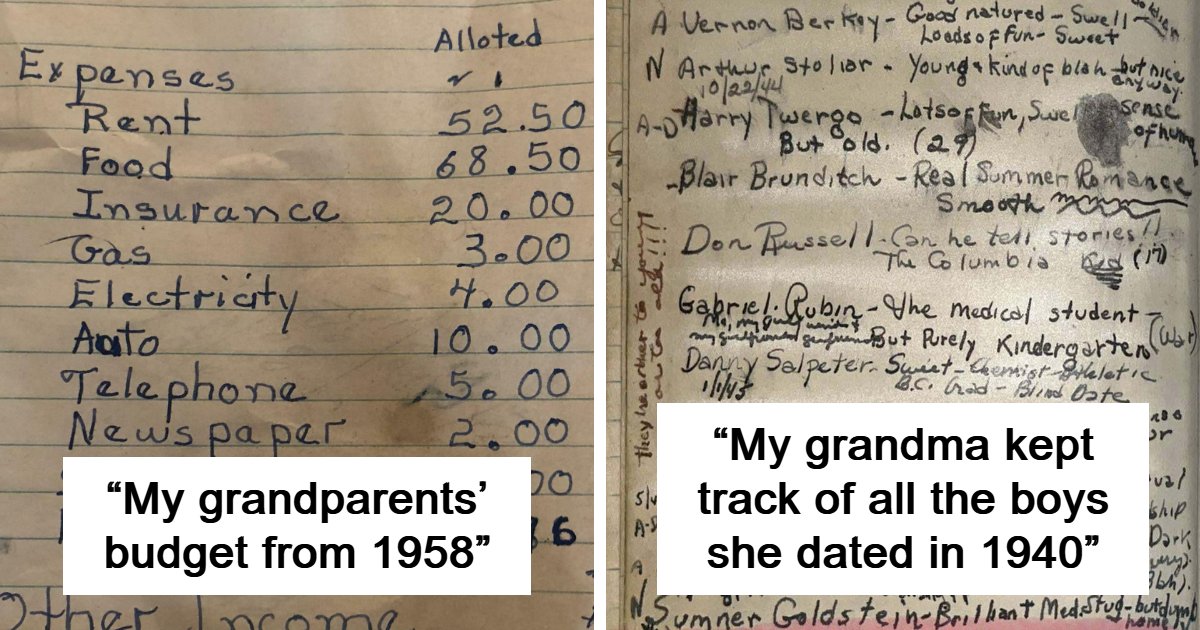 Alloted
Expenses
Rent 52.50
Food 68.50
Insurance 20.00
Gas 3.00
Electricity 4.00
Auto 10.00
Telephone 5.00
Newspaper 2.00
00
86
Other Income
“My grandparents’
budget from 1958”
A Vernon Berkey - Good natured - Swell
Loads of fun - Sweet
N Arthur Stoliar - Young & kind of blah - but nice
anyway.
10/22/44
A-D Harry Twergo - Lots of fun, Swel sense
of humo
But old. (29)
- Blair Brunditch - Real Summer Romance
Smooth
Don Russell - Can he tell stories!!
The Columbia Kid (17)
Gabriel Rubin - the medical student -
But Purely Kindergarten (War)
Danny Salpeter - Sweet - Chemist - Athletic
1/1/45 B.C. Grad - Blind Date
they're either too young
or too old!!!
“My grandma kept
track of all the boys
she dated in 1940”
ual
ship
Dark
A
N Sumner Goldstein - Brilliant Med. Stug - but dumb
homely